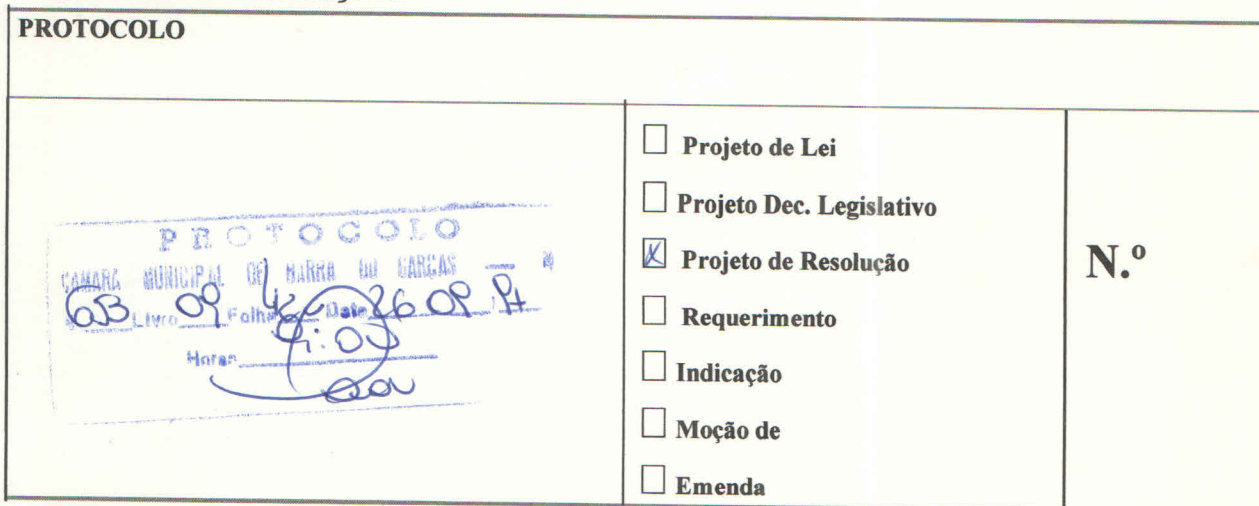 PROTOCOLO
PROTOCOLO
CAMARA MUNICIPAL DE BARRA DO GARÇAS —
Livro 09 Folha Data 26 09
Horas
☐ Projeto de Lei
☐ Projeto Dec. Legislativo
☒ Projeto de Resolução
☐ Requerimento
☐ Indicação
☐ Moção de
☐ Emenda
N.º